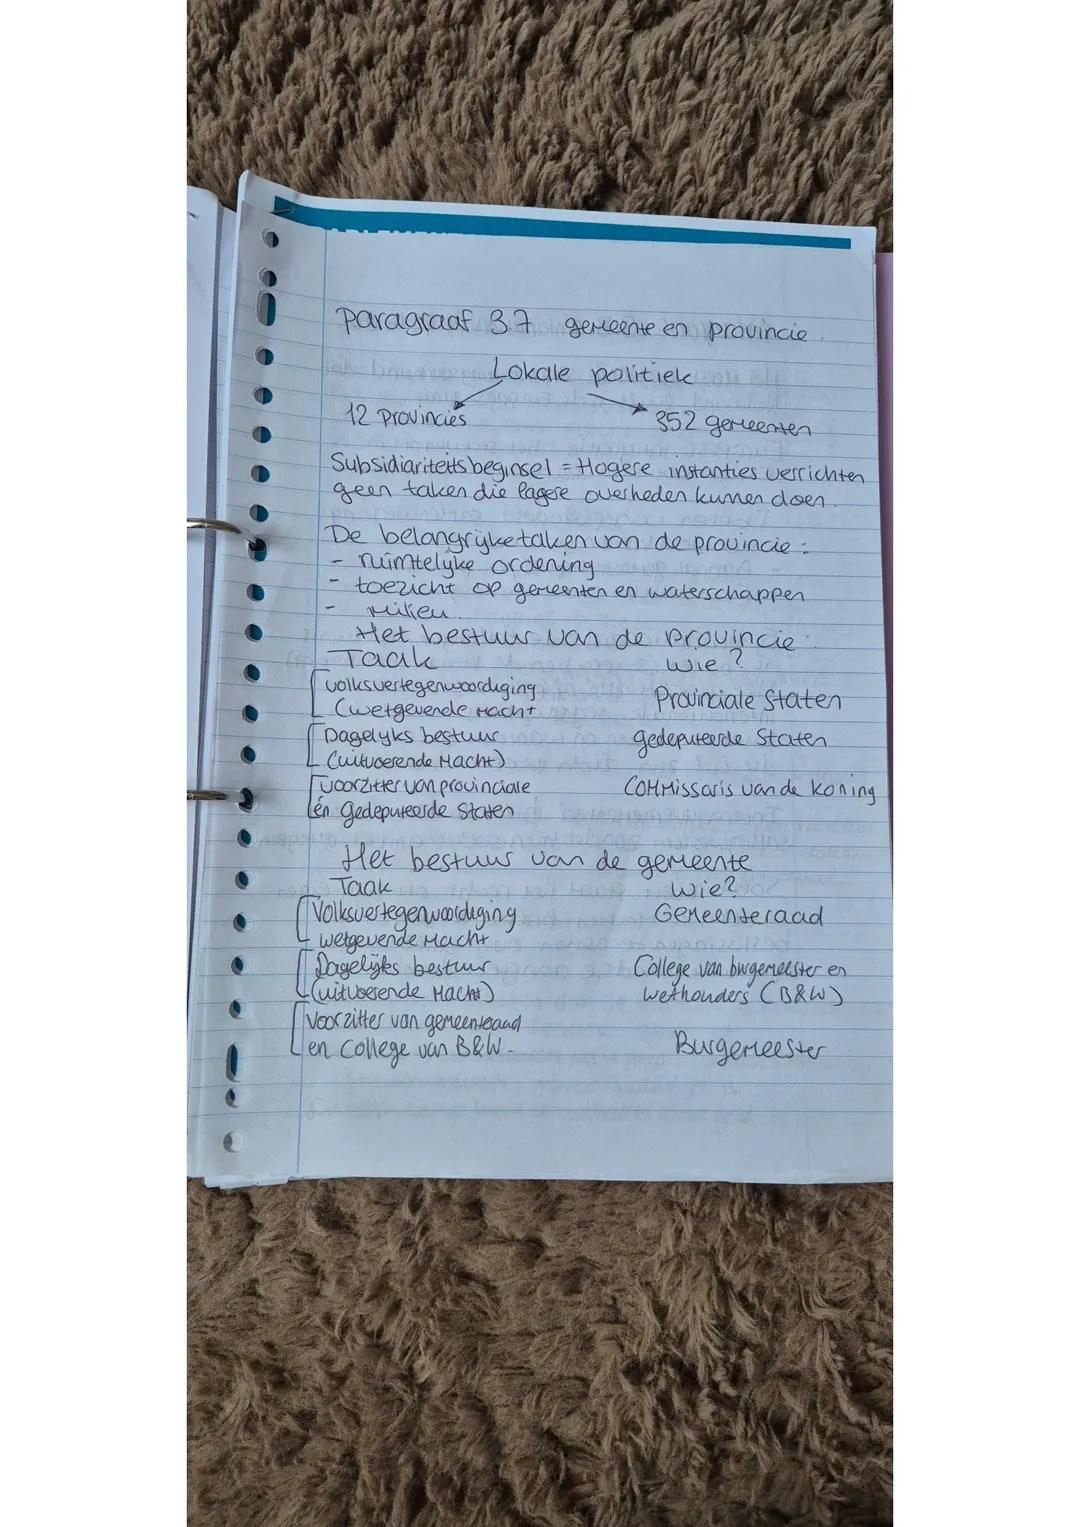 Paragraaf 3.7 gemeente en provincie.
Lokale politiek
12 Provincies 352 gemeenten
Subsidiariteitsbeginsel = Hogere instanties verrichten
geen taken die lagere overheden kunnen doen.
De belangrijke taken van de provincie:
- ruimtelijke ordening
- toezicht op gemeenten en waterschappen
- Milieu.
Het bestuur van de Provincie:
Taak Wie?
volksvertegenwoordiging Provinciale Staten
(wetgevende Macht
Dagelijks bestuur gedeputeerde Staten
(uitvoerende Macht)
voorzitter van provinciale Commissaris van de Koning
én Gedeputeerde Staten
Het bestuur van de gemeente
Taak Wie?
Volksvertegenwoordiging Gemeenteraad
wetgevende Macht
Dagelijks bestuur College van burgemeester en
(uitvoerende Macht) wethouders (B&W)
Voorzitter van gemeenteraad
en College van B&W. Burgemeester